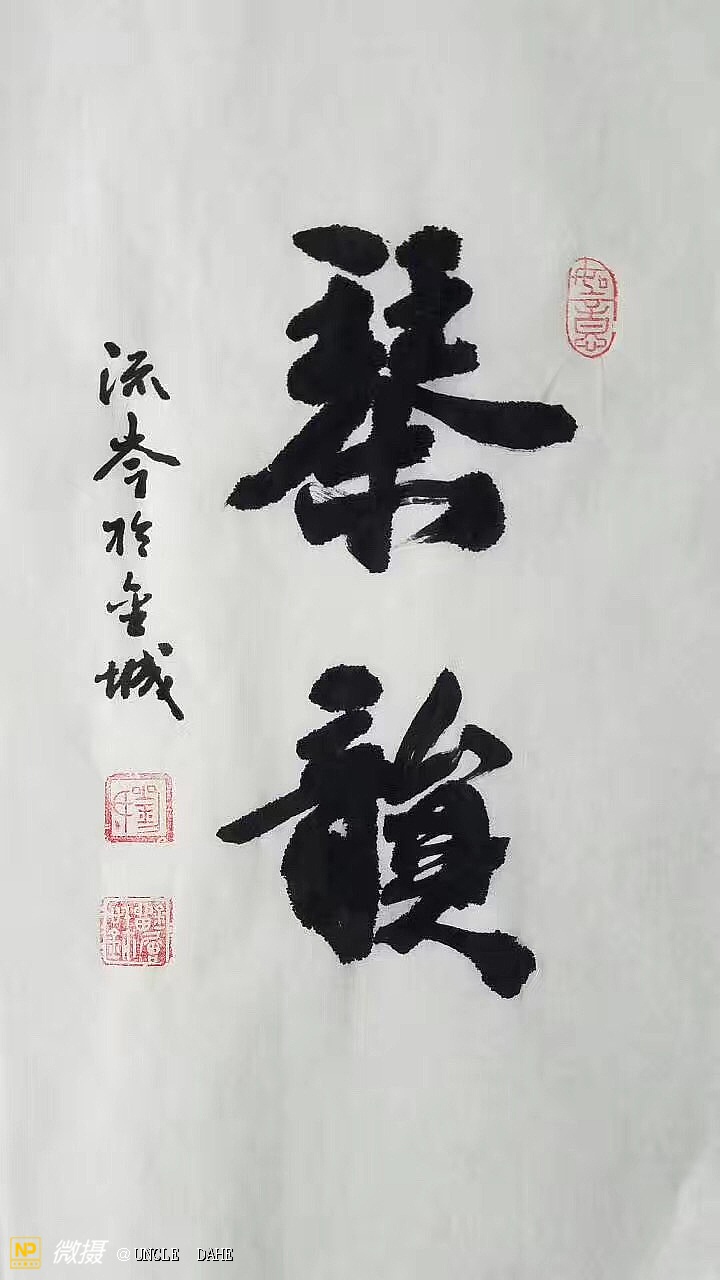 琴韻
流岑於金城
如意
NP 微摄 @UNCLE DAHE